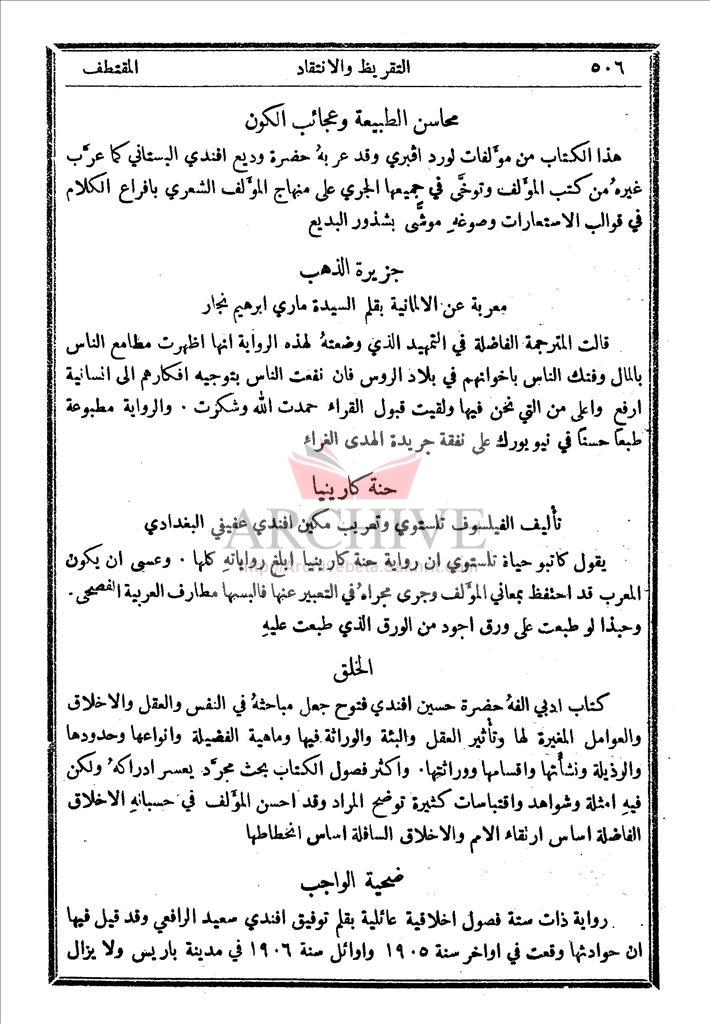 ٥٠٦ التقريظ والانتقاد المقتطف
محاسن الطبيعة وعجائب الكون
هذا الكتاب من مؤلفات لورد اڤبري وقد عربهُ حضرة وديع افندي البستاني كما عرَّب
غيرهُ من كتب المؤلف وتوخَّى في جميعها الجري على منهاج المؤلف الشعري بافراغ الكلام
في قوالب الاستعارات وصوغهِ موشًّى بشذور البديع
جزيرة الذهب
معربة عن الالمانية بقلم السيدة ماري ابرهيم نجار
قالت المترجمة الفاضلة في التمهيد الذي وضعتهُ لهذه الرواية انها اظهرت مطامع الناس
بالمال وفتك الناس باخوانهم في بلاد الروس فان نفعت الناس بتوجيه افكارهم الى انسانية
ارفع واعلى من التي نحن فيها ولقيت قبول القراء حمدت الله وشكرت ٠ والرواية مطبوعة
طبعًا حسنًا في نيويورك على نفقة جريدة الهدى الغراء
حنة كارينيا
ARCHIVE
تأليف الفيلسوف تلستوي وتعريب مكين افندي عفيفي البغدادي
يقول كاتبو حياة تلستوي ان رواية حنة كارينيا ابلغ رواياتهِ كلها ٠ وعسى ان يكون
المعرب قد احتفظ بمعاني المؤلف وجرى مجراه في التعبير عنها فالبسها مطارف العربية الفصحى٠
وحبذا لو طبعت على ورق اجود من الورق الذي طبعت عليهِ
الخلق
كتاب ادبي الفهُ حضرة حسين افندي فتوح جعل مباحثهُ في النفس والعقل والاخلاق
والعوامل المغيرة لها وتأثير العقل والبئة والوراثة فيها وماهية الفضيلة وانواعها وحدودها
والرذيلة ونشأتها واقسامها ووراثتها٠ واكثر فصول الكتاب بحث مجرَّد يعسر ادراكهُ ولكن
فيهِ امثلة وشواهد واقتباسات كثيرة توضح المراد وقد احسن المؤلف في حسبانهِ الاخلاق
الفاضلة اساس ارتقاء الامم والاخلاق السافلة اساس انحطاطها
ضحية الواجب
رواية ذات ستة فصول اخلاقية عائلية بقلم توفيق افندي سعيد الرافعي وقد قيل فيها
ان حوادثها وقعت في اواخر سنة ١٩٠٥ واوائل سنة ١٩٠٦ في مدينة باريس ولا يزال